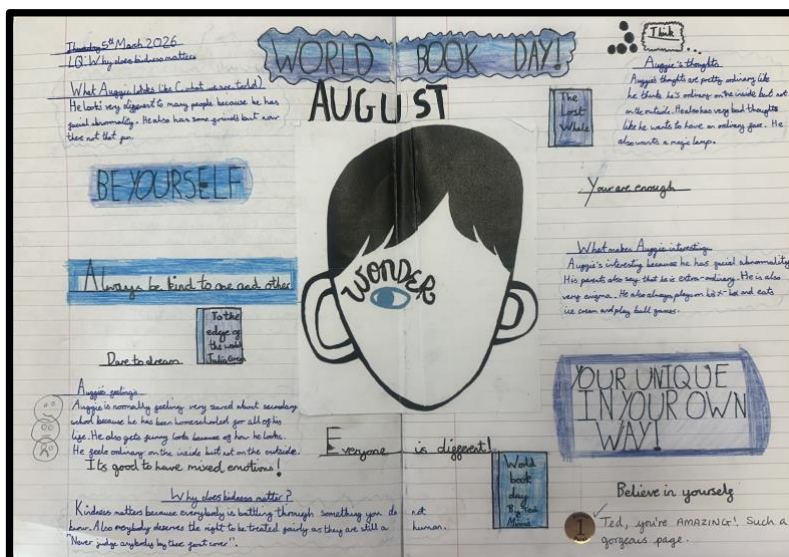 Thursday 5th March 2026
LQ: Why does kidness matter
WORLD BOOK DAY!
AUGUST
What Auggie looks like (what we are told)
He looks very different to many people because he has
facial abnormality. He also has some friends but now
there not that fun.
BE YOURSELF
Always be kind to one and other
To the
edge of
the world
Julia Green
Dare to dream
Auggie's feelings
Auggie is normally feeling very scared about secondary
school because he has been homeschooled for all of his
life. He also gets funny looks because of how he looks.
He feels ordinary on the inside but not on the outside.
It's good to have mixed emotions!
Why does kidness matter?
Kindness matters because everybody is battling through something you do not
know. Also everybody deserves the right to be treated fairly as they are still a human.
"Never judge anybody by their front cover".
WONDER
Everyone is different!
World
book
day
By: Ted
&
Minnie
I think...
Auggie's thoughts
Auggie's thoughts are pretty ordinary like
he thinks he's ordinary on the inside but not
on the outside. He also has very bad thoughts
like he wants to have an ordinary face. He
also wants a magic lamp.
The
Lost
Whale
You are enough
What makes Auggie interesting
Auggie's interesting because he has facial abnormality.
His parents also say that he is extra-ordinary. He is also
very enigma. He also always plays on his x-box and eats
ice cream and play ball games.
YOUR UNIQUE
IN YOUR OWN
WAY!
Believe in yourself
1
Ted, you're AMAZING! Such a
gorgeous page.